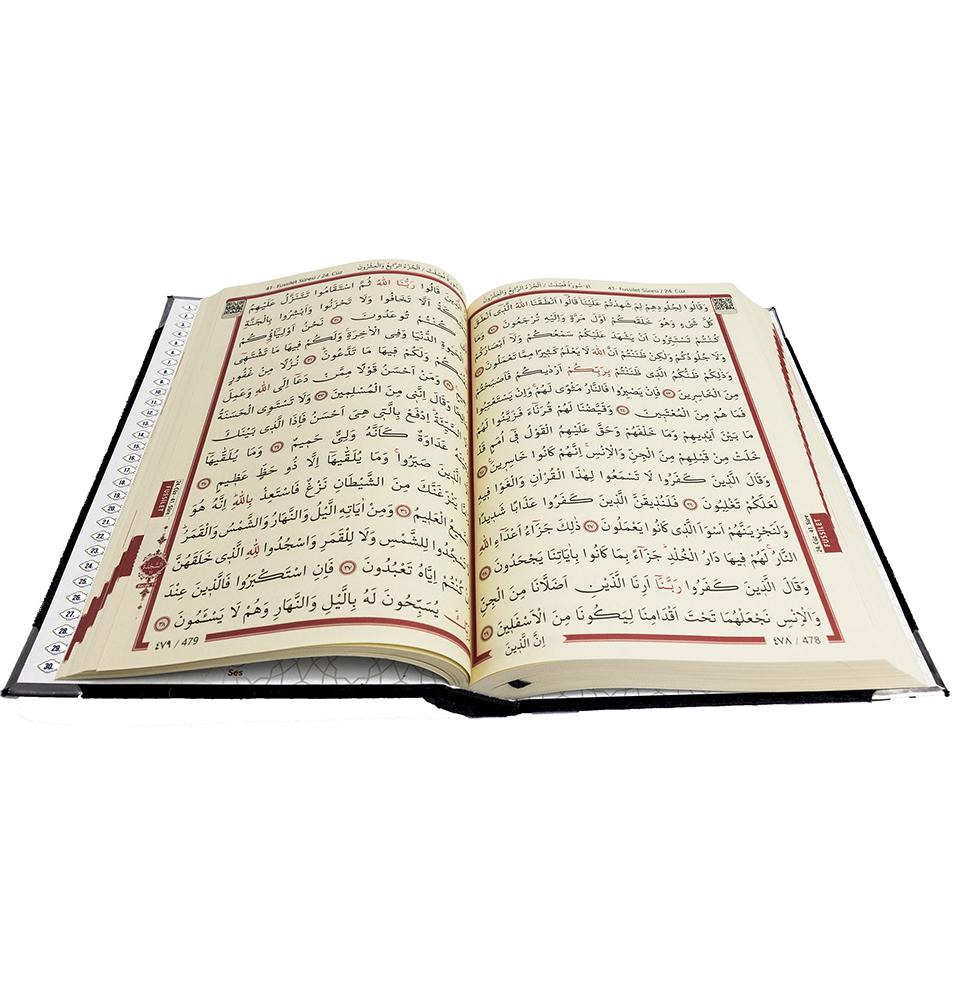 41- Fussilet Sûresi / 24. Cüz
٤١-سُورَةُ فُصِّلَتْ / اَلْجُزْءُ الرَّابِعُ وَالْعِشْرُونَ
وَقَالُوا لِجُلُودِهِمْ لِمَ شَهِدْتُمْ عَلَيْنَا قَالُوا اَنْطَقَنَا اللّٰهُ الَّذٖى اَنْطَقَ
كُلَّ شَىْءٍ وَهُوَ خَلَقَكُمْ اَوَّلَ مَرَّةٍ وَاِلَيْهِ تُرْجَعُونَ ٢١ وَمَا
كُنْتُمْ تَسْتَتِرُونَ اَنْ يَشْهَدَ عَلَيْكُمْ سَمْعُكُمْ وَلَا اَبْصَارُكُمْ
وَلَا جُلُودُكُمْ وَلٰكِنْ ظَنَنْتُمْ اَنَّ اللّٰهَ لَا يَعْلَمُ كَثٖيرًا مِمَّا تَعْمَلُونَ ٢٢
وَذٰلِكُمْ ظَنُّكُمُ الَّذٖى ظَنَنْتُمْ بِرَبِّكُمْ اَرْدٰيكُمْ فَاَصْبَحْتُمْ
مِنَ الْخَاسِرٖينَ ٢٣ فَاِنْ يَصْبِرُوا فَالنَّارُ مَثْوًى لَهُمْ وَاِنْ يَسْتَعْتِبُوا
فَمَا هُمْ مِنَ الْمُعْتَبٖينَ ٢٤ وَقَيَّضْنَا لَهُمْ قُرَنَٓاءَ فَزَيَّنُوا لَهُمْ
مَا بَيْنَ اَيْدٖيهِمْ وَمَا خَلْفَهُمْ وَحَقَّ عَلَيْهِمُ الْقَوْلُ فٖٓى اُمَمٍ قَدْ
خَلَتْ مِنْ قَبْلِهِمْ مِنَ الْجِنِّ وَالْاِنْسِ اِنَّهُمْ كَانُوا خَاسِرٖينَ ٢٥
وَقَالَ الَّذٖينَ كَفَرُوا لَا تَسْمَعُوا لِهٰذَا الْقُرْاٰنِ وَالْغَوْا فٖيهِ
لَعَلَّكُمْ تَغْلِبُونَ ٢٦ فَلَنُذٖيقَنَّ الَّذٖينَ كَفَرُوا عَذَابًا شَدٖيدًا
وَلَنَجْزِيَنَّهُمْ اَسْوَاَ الَّذٖى كَانُوا يَعْمَلُونَ ٢٧ ذٰلِكَ جَزَٓاءُ اَعْدَٓاءِ اللّٰهِ
النَّارُ لَهُمْ فٖيهَا دَارُ الْخُلْدِ جَزَٓاءً بِمَا كَانُوا بِاٰيَاتِنَا يَجْحَدُونَ ٢٨
وَقَالَ الَّذٖينَ كَفَرُوا رَبَّنَٓا اَرِنَا الَّذَيْنِ اَضَلَّانَا مِنَ الْجِنِّ
وَالْاِنْسِ نَجْعَلْهُمَا تَحْتَ اَقْدَامِنَا لِيَكُونَا مِنَ الْاَسْفَلٖينَ ٢٩
اِنَّ الَّذٖينَ
٤٧٨ / 478
24. Cüz - 41. Sûre
FUSSİLET
41- Fussilet Sûresi / 24. Cüz
سُورَةُ فُصِّلَتْ / اَلْجُزْءُ الرَّابِعُ وَالْعِشْرُونَ
الَّذٖينَ قَالُوا رَبُّنَا اللّٰهُ ثُمَّ اسْتَقَامُوا تَتَنَزَّلُ عَلَيْهِمُ
اَلَّا تَخَافُوا وَلَا تَحْزَنُوا وَاَبْشِرُوا بِالْجَنَّةِ
كُنْتُمْ تُوعَدُونَ ٣٠ نَحْنُ اَوْلِيَٓاؤُكُمْ
الْحَيٰوةِ الدُّنْيَا وَفِى الْاٰخِرَةِ وَلَكُمْ فٖيهَا مَا تَشْتَهٖٓى
وَلَكُمْ فٖيهَا مَا تَدَّعُونَ ٣١ نُزُلًا مِنْ غَفُورٍ
٣٢ وَمَنْ اَحْسَنُ قَوْلًا مِمَّنْ دَعَٓا اِلَى اللّٰهِ وَعَمِلَ
وَقَالَ اِنَّنٖى مِنَ الْمُسْلِمٖينَ ٣٣ وَلَا تَسْتَوِى الْحَسَنَةُ
اِدْفَعْ بِالَّتٖى هِىَ اَحْسَنُ فَاِذَا الَّذٖى بَيْنَكَ
عَدَاوَةٌ كَاَنَّهُ وَلِىٌّ حَمٖيمٌ ٣٤ وَمَا يُلَقّٰيهَٓا
الَّذٖينَ صَبَرُوا وَمَا يُلَقّٰيهَٓا اِلَّا ذُو حَظٍّ عَظٖيمٍ ٣٥
يَنْزَغَنَّكَ مِنَ الشَّيْطَانِ نَزْغٌ فَاسْتَعِذْ بِاللّٰهِ اِنَّهُ هُوَ
الْعَلٖيمُ ٣٦ وَمِنْ اٰيَاتِهِ الَّيْلُ وَالنَّهَارُ وَالشَّمْسُ وَالْقَمَرُ
تَسْجُدُوا لِلشَّمْسِ وَلَا لِلْقَمَرِ وَاسْجُدُوا لِلّٰهِ الَّذٖى خَلَقَهُنَّ
كُنْتُمْ اِيَّاهُ تَعْبُدُونَ ٣٧ فَاِنِ اسْتَكْبَرُوا فَالَّذٖينَ عِنْدَ
يُسَبِّحُونَ لَهُ بِالَّيْلِ وَالنَّهَارِ وَهُمْ لَا يَسْـَٔمُونَ ٣٨
٤٧٩ / 479
24. Cüz - 41. Sûre
FUSSİLET
السَّجْدَةُ
11.
12.
13.
14.
15.
16.
17.
18.
19.
20.
21.
22.
23.
24.
25.
26.
27.
28.
29.
30.
Ses